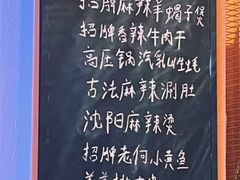 招牌麻辣羊蝎子煲
招牌香辣牛肉干
高压锅汽乳山生蚝
古法麻辣涮肚
沈阳麻辣烫
招牌老何小黄鱼